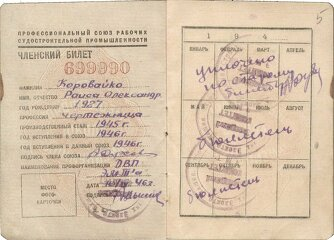 ПРОФЕССИОНАЛЬНЫЙ СОЮЗ РАБОЧИХ
СУДОСТРОИТЕЛЬНОЙ ПРОМЫШЛЕННОСТИ
ЧЛЕНСКИЙ БИЛЕТ
699990
ФАМИЛИЯ Коровайко
ИМЯ, ОТЧЕСТВО Раиса Олександр.
ГОД РОЖДЕНИЯ 1927
ПРОФЕССИЯ чертежница
ПРОИЗВОДСТВЕННЫЙ СТАЖ с 1945г
ГОД ВСТУПЛЕНИЯ В СОЮЗ 1946г.
ГОД ВСТУПЛЕНИЯ В ДАННЫЙ СОЮЗ 1946г.
ПОДПИСЬ ЧЛЕНА СОЮЗА
НАИМЕНОВАНИЕ ПРОФОРГАНИЗАЦИИ
МЕСТО
ФОТО-
КАРТОЧКИ
5
194
ЯНВАРЬ ФЕВРАЛЬ МАРТ АПРЕЛЬ
уплочено
по старому
билету
МАЙ ИЮНЬ ИЮЛЬ АВГУСТ
бюлитень
СЕНТЯБРЬ ОКТЯБРЬ НОЯБРЬ ДЕКАБРЬ
бюлитень